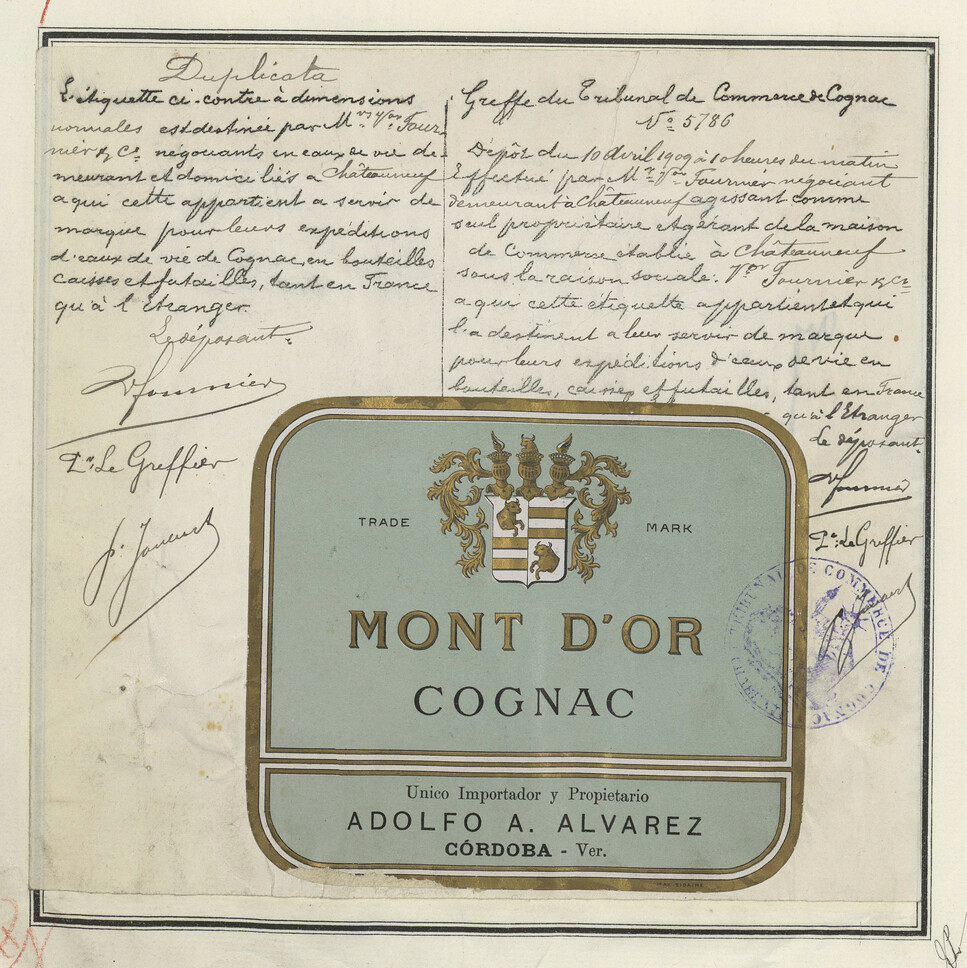 Duplicata
L'étiquette ci-contre à dimensions
normales est destinée par Mrs Vor Four-
nier & Ce négociants en eaux de vie de-
meurant et domiciliés à Châteauneuf
a qui cette appartient a servir de
marque pour leurs expéditions
d'eaux de vie de Cognac, en bouteilles
caisses et futailles, tant en France
qu'à l'Etranger.
Le déposant.
Vr Fournier
Pr Le Greffier
Greffe du Tribunal de Commerce de Cognac
No 5786
Dépôt du 10 Avril 1909 à 10 heures du matin
Effectué par Mr Vor Fournier négociant
demeurant à Châteauneuf agissant comme
seul propriétaire et gérant de la maison
de Commerce établie à Châteauneuf
sous la raison sociale: Vor Fournier & Ce
a qui cette étiquette appartient et qui
l'a destinent a leur servir de marque
pour leurs expéditions d'eaux de vie en
bouteilles, caisses et futailles, tant en France
qu'à l'Etranger
Le déposant.
Vr Fournier
Pr Le Greffier
TRIBUNAL DE COMMERCE DE COGNAC
TRADE MARK
MONT D'OR
COGNAC
Unico Importador y Propietario
ADOLFO A. ALVAREZ
CÓRDOBA - Ver.